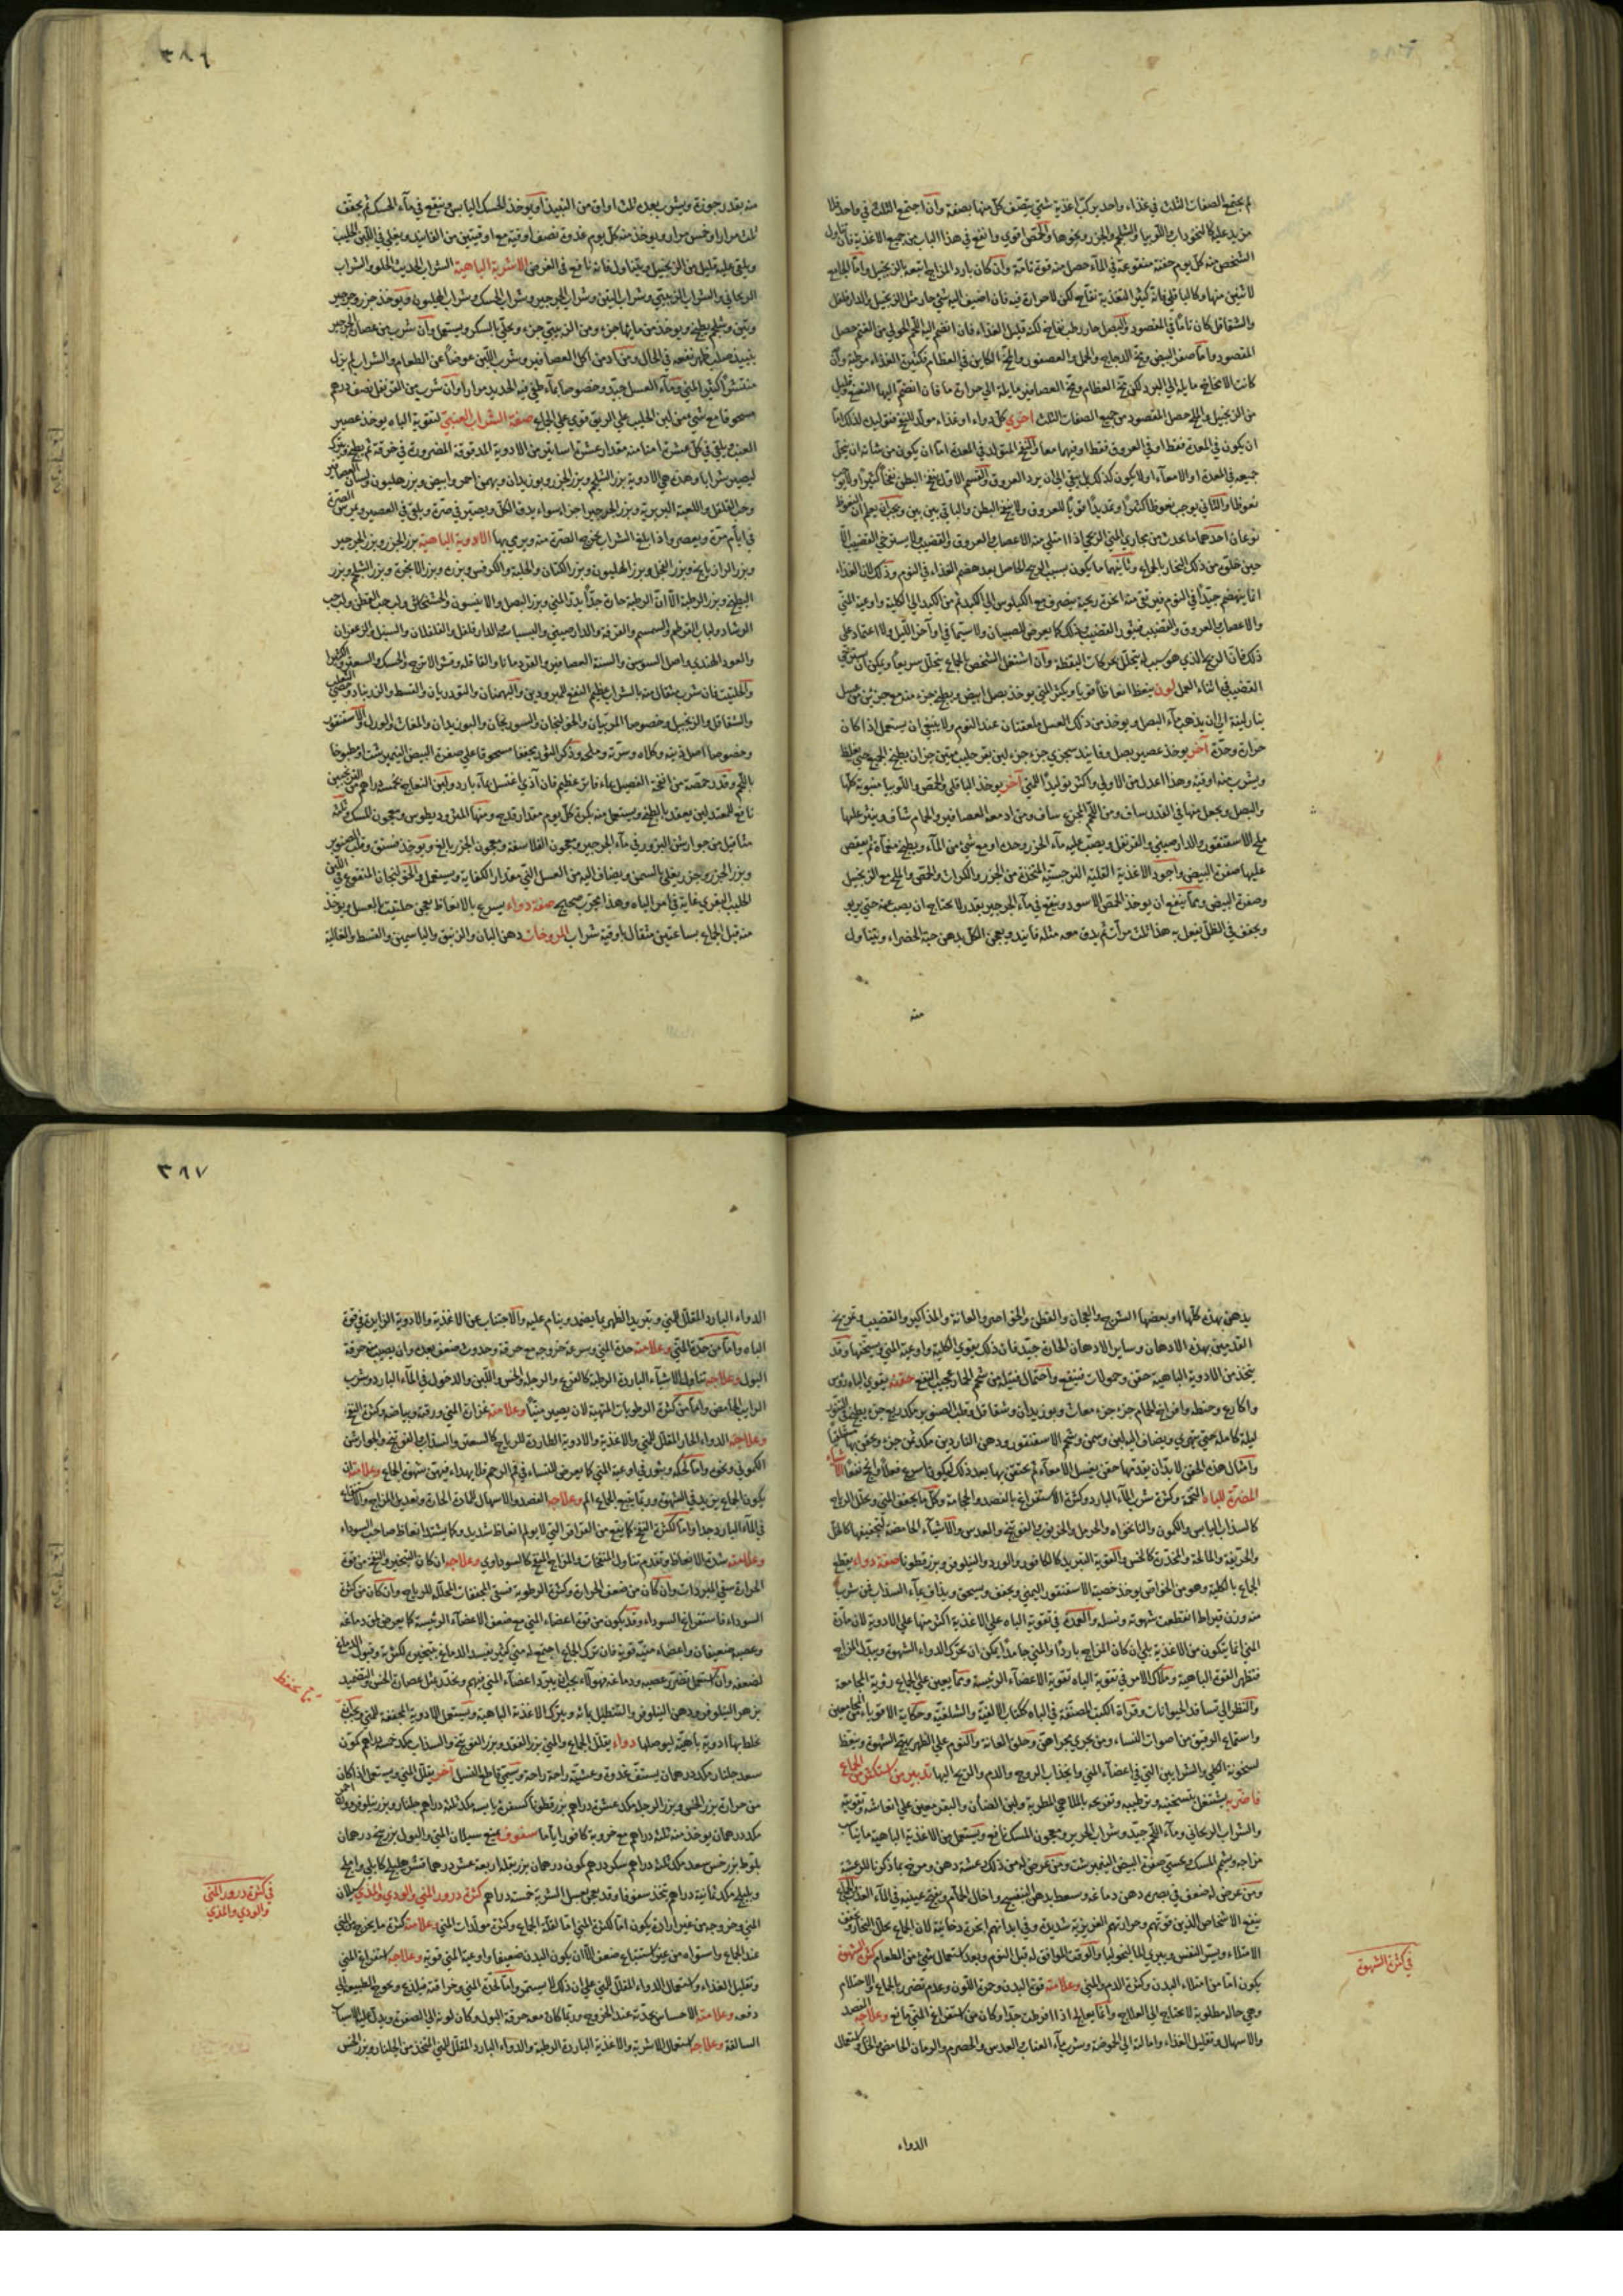 لم يجتمع الصفات الثلث في غذاء واحد يركب اغذية شتي يتصف كل منها بصفة وان اجتمع الثلث في واحد فلا
مزيد عليه كالنخود اب واللوبيا والشلجم والجزر ونحوها والحمص اقوي وانفع في هذا الباب من جميع الاغذية فان تناول
الشخص منه كل يوم حفنة منقوعة في المآء حصل منه قوة تامة وان كان بارد المزاج اتبعه بالزنجبيل واما الجامع
لاثنين منها وكالباقلي فانه كثير التغذية نفاخ لكن لا حرارة فيه فان اضيف اليه شي حار مثل الزنجبيل والدارفلفل
والشقاقل كان تاما في المقصود والبصل حار رطب نفاخ لكنه قليل الغذاء فان انضم اليه اللحم الحولي من الغنم حصل
المقصود واما صفرة البيض ومخ الدجاج والحمل والعصفور والمخ الكاين في العظام فكثير الغذاء مرطبة وان
كانت الانخاخ مايلة الي البرد لكن مخ العظام ومخ العصافير مايلة الي حرارة ما فان انضم اليها النعنع وقليل
من الزنجبيل والملح حصل المقصود من جميع الصفات الثلث اخري كل دواء او غذاء مولد للنفخ فتوليده لذلك اما
ان يكون في المعدة فقط او في العروق فقط او فيهما معا والنفخ المتولد في المعدة اما ان يكون من شانه ان ينحل
جميعه في المعدة او الامعآء او لا يكون كذلك بل يبقي الي ان يرد العروق والقسم الاول ينفخ البطن نفخا كثيرا ولا يوجب
نعوظا والثاني يوجب نعوظا كثيرا وتمديدا قويا للعروق ولا ينفخ البطن والباقي بين بين ويجب ان يعلم ان النعوظ
نوعان احدهما ما يحدث من مجاري المني الريحي اذا امتلي منه الاعصاب والعروق والقضيب ولا يسترخي القضيب الا
حين خلق من ذلك البخار بالجماع وثانيهما ما يكون بسبب الريح الحاصل بعد هضم الغذاء في النوم وذلك لان الغذاء
انما ينهضم جيدا في النوم فيرتقي منه ابخرة ريحية ينصرف مع الكيلوس الي الكبد ثم من الكبد الي الكلية واوعية المني
والاعصاب والعروق والقضيب فيثور القضيب وذلك كما يعرض للصبيان ولا سيما في اواخر الليل ولا اعتماد علي
ذلك فان الريح الذي هو سببه يتحلل بحركات اليقظة وان اشتغل الشخص بالجماع يتحلل سريعا ويكن ان يسترخي
القضيب في اثناء العمل لون ينعظ انعاظا قويا ويكثر المني يوخذ بصل ابيض ويطبخ جزء منه مع جزئين من عسل
بنار لينة الي ان يذهب مآء البصل ويوخذ من ذلك العسل ملعقتان عند النوم ولا ينبغي ان يستعمل اذا كان
حرارة وحدة آخر يوخذ عصير بصل وفانيد سجزي جزء جزء لبن بقر حليب مثل جزان يطبخ الجميع حتي يغلظ
ويشرب منه اوقية وهذا اعدل من الاولي واكثر توليدا للمني آخر يوخذ الباقلي والحمص واللوبيا منبوتة كلها
والبصل ويجعل منها في القدر ساف ومن اللحم المجزع ساف ومن ادمغة العصافير والحمام ساف وينثر عليها
ملح الاسقنقور والدارصيني والقرنفل ويصب عليه مآء الجزر وحده او مع شي من المآء ويطبخ مغمآة ثم يفقص
عليها صفرة البيض واجود الاغذية القلية النرجسية المتخذة من الجزر والكراث والحمص والملح مع الزنجبيل
وصفرة البيض ومما ينفع ان يوخذ الحمص الاسود وينقع في مآء الجرجير بقدر لا يحتاج ان يصب عنه حتي يربو
ويجفف في الظل يفعل به هذا ثلث مرات ثم يدق معه مثله فانيد ويعجن الكل بدهن حبة الخضراء ويتناول
منه
٣٨٦
منه بقدر جوزة ويشرب بعده ثلث اواق من النبيذ او يوخذ الحسك اليابس وينقع في مآء الحسك ثم يجفف
ثلث مرار او خمس مرار ويوخذ منه كل يوم غدوة نصف اوقية مع اوقيتين من الفانيد ويغلي في اللبن الحليب
ويلقي عليه قليل من الزنجبيل ويتناول فانه نافع في الغرض الاشربة الباهية الشراب الحديث الحلو والشراب
الريحاني والشراب الزبيبي وشراب التين وشراب الجرجير وشراب الحسك وشراب الهليون ويوخذ جزر وجرجير
وتين وشلجم يطبخ ويوخذ من مائها جزء ومن الزبيبي جزء ويحلي بالسكر ويستعمل وان شرب من عصارة الجرجير
بنبيذ صلب ظهر نفعه في الحال ومن ادمن اكل العصافير وشرب اللبن عوضا عن الطعام والشراب لم يزل
منتشرا كثير المني ومآء العسل جيد وخصوصا بمآء طفي فيه الحديد مرارا وان شرب من القرنفل نصف درهم
مسحوقا مع شي من لبن الحليب علي الريق قوي علي الجماع صفة الشراب العنبي لتقوية الباه يوخذ عصير
العنب ويلقي في كل عشرة امنا منه مقدار عشرة اساتير من الادوية المدقوقة المصرورة في خرقة ثم يطبخ ويترك
ليصير شرابا وهذه هي الادوية بزر الشلجم وبزر الجزر وبوزيدان وبهمن احمر وابيض وبزر هليون ولسان العصافير
وحب الفلفل واللعبة البربرية وبزر الجرجير اجزاء سواء يدق الكل ويصير في صرة ويلقي في العصير ويمرس الصرة
في ايام مرة ويعصر واذا بلغ الشراب يخرج الصرة منه ويرمي بها الادوية الباهية بزر الجزر وبزر الجرجير
وبزر الرازيانج وبزر الفجل وبزر الهليون وبزر الكتان والحلبة والكرفس وبزره وبزر الانجرة وبزر الشلجم وبزر
البطيخ وبزر الرطبة الا ان الرطبة حارة جدا يدر المني وبزر البصل والانيسون والخشخاش ولب حب القطن ولب حب
الرشاد ولباب القرطم والسمسم والقرفة والدارصيني والبسباسة والدارفلفل والفلفلان والسنبل والزعفران
والعود الهندي واصل السوسن والسنة العصافير والقردمانا والقاقلة وقشر الاترج والمسك والسعتر والكثيرا
والحلتيت فان شرب مثقال منه بالشراب عظيم النفع للمبرودين والبهمنان والتودريان والقسط والزرنباد وخصي الثعلب
والشقاقل والزنجبيل وخصوصا المربيان والخولنجان والسورنجان والبوزيدان والمغاث والورل والاسقنقور
وخصوصا اصل ذنبه وكلاه وسرته وملحه وذكر الثور يجفف مسحوقا علي صفرة البيض النيمبرشت او مطبوخا
باللحم وقدر حمصة من انفحة الفصيل بماء فاتر عظيم فان آذي اغتسل بمآء بارد ولبن النعاج بخمسة دراهم من الترنجبين
نافع للمعتدلين يعقد بالطبخ ويستعمل منه بكرة كل يوم مقدار قدح ومنها المثروديطوس ومعجون المسك ثلثة
مثاقيل من جوارشن البزور في مآء الجرجير ومعجون الفلاسفة ومعجون الجزر بالغ ويوخذ فستق وقلب الصنوبر
وبزر الجزر وجزر يغلي بالسمن ويضاف اليه من العسل التي مقدار الكفاية ويستعمل والخولنجان المنقوع في اللبن
الحليب البقري غاية في امر الباه وهذا مجرب صحيح صفة دواء يسرع بالانعاظ يعجن حلتيت بالعسل ويوخذ
منه قبل الجماع بساعتين مثقال باوقية شراب المروخات دهن البان والزنبق والياسمين والقسط والغالية
يدهن بهذه كلها او بعضها الشرج والعجان والقطن والخواصر والعانة والمذاكير والقضيب وتمريخ
القدمين بهذه الادهان وساير الادهان الحارة جيد فان ذلك يقوي الكلية واوعية المني ويسخنها وقد
يتخذ من الادوية الباهية حقن وحمولات فينفع واحتمال فتيلة من شحم الحمار عجيب النفع حقنة يقوي الباه رؤس
واكارع وحنطة وافراخ الحمام جزء جزء مغاث وبوزيدان وشقاقل وقلب الصنوبر مكد ربع جزء يطبخ في التنور
ليلة كاملة حتي يتهري ويضاف اليه لبن وسمن وشحم الاسقنقور ودهن الناردين مكد ثمن جزء ويحقن بها مستلقيا
وامثال هذه الحقن لا بد ان يتقدمها حقن يغسل الامعآء ثم يحتقن بها بعد ذلك ليكون اسرع فعلا وانجح نفعا الاشياء
المضرة للباه التخمة وكثرة شرب المآء البارد وكثرة الاستفراغ بالفصد والحجامة وكل ما يجفف المني ويحلل الرياح
كالسذاب اليابس والكمون والنانخواه والحرمل والخرنوب والفوتنج والعدس والاشيآء الحامضة لتجفيفها كالخل
والحريفة والمالحة والمخدرة كالخس والقوية التبريد كالكافور والورد والنيلوفر وبزر قطونا صفة دواء يقطع
الجماع بالكلية وهو من الخواص يوخذ خصية الاسقنقور اليمني ويجفف ويسحق ويداف بمآء السذاب فمن شرب
منه وزن قيراط انقطعت شهوته ونسله والعمدة في تقوية الباه علي الاغذية اكثر منها علي الادوية لان مادة
المني انما يتكون من الاغذية بلي ان كان المزاج باردا والمني جامدا يمكن ان يحرك الدواء الشهوة ويبدل المزاج
فتظهر القوة الباهية وملاك الامر في تقوية الباه تقوية الاعضآء الرئيسة ومما يعين علي الجماع رؤية المجامعة
والنظر الي تسافد الحيوانات وقرآة الكتب المصنفة في الباه ككتاب الالفية والشلفية وحكاية الاقوياء المجامعين
واستماع الرقيق من اصوات النساء ومن يجري مجراهن وحلق العانة والنوم علي الظهر يهيج الشهوة وينعظ
لسخونة الكلي والشرايين التي في اعضآء المني وانجذاب الروح والدم والريح اليها تدبير من استكثر من الجماع
فاضر به يشتغل بتسخينه وترطيبه وتفريحه بالملاهي المطربة ولبن الضأن والبقر معين علي انعاشه وتقويته
والشراب الريحاني ومآء اللحم جيد وشراب الحرير ومعجون المسك نافع ويستعمل من الاغذية الباهية ما يناسب
مزاجه ويشم المسك ويحسي صفرة البيض النيمبرشت ومن عرض له من ذلك عشة دهن ومرخ بما ذكرنا للرعشة
ومن عرض له ضعف في بصره دهن دماغه وسعط بدهن البنفسج وادخال الحمام ويفتح عينيه في المآء العذب والجماع
ينفع الاشخاص الذين قوتهم وحرارتهم الغريزية شديدة وفي ابدانهم ابخرة دخانية لان الجماع يحلل البخار ويخفف
الامتلاء ويسر النفس ويبري الماليخوليا والوقت الموافق له قبل النوم وبعد استعمال شي من الطعام كثرة الشهوة
يكون اما من امتلاء البدن وكثرة الدم والمني وعلامته قوة البدن وحمرة اللون وعدم تضرر بالجماع والاحتلام
وهي حالة مطلوبة لا يحتاج الي العلاج وانما يعالج اذا افرطت جدا وكان من استفراغ المني مانع وعلاجه الفصد
والاسهال وتقليل الغذاء وامالته الي الحموضة وشرب مآء العناب والعدس والحصرم والرمان الحامض والخل واستعمال
الدواء
في كثرة الشهوة
٣٨٧
الدواء البارد المقلل للمني وتبريد الظهر بما يضمد وينام عليه والاجتناب عن الاغذية والادوية الزايدة في قوة
الباه واما من حدة المني وعلامته حدة المني وسرعة خروجه مع حرقة وحدوث ضعف بعده وان يصيب حرقة
البول وعلاجه تناول الاشيآء الباردة الرطبة كالقرع والرجلة والخس واللبن والدخول في المآء البارد وشرب
الرايب الحامض واما من كثرة الرطوبات المتهيئة لان يصير منيا وعلامته غزارة المني ورقته وبياضه وكثرة النفخ
وعلاجه الدواء الحار المقلل للمني والاغذية والادوية الطاردة للرياح كالسعتر والسذاب والفوتنج والجوارشن
الكموني ونحوه واما لحكة وبثور في اوعية المني كما يعرض للنساء في فم الرحم فلا يهداء فيهن شهوة الجماع وعلامته ان
يكون الجماع يزيد في الشهوة وربما يتبع الجماع الم وعلاجه الفصد والاسهال للمادة الحارة وتعديل المزاج والاستنقاع
في المآء البارد جدا واما لكثرة النفخ كما يقع من القراقر التي لا يولم انعاظ شديد وكما يشتد انعاظ صاحب السوداء
وعلامته شدة الانعاظ وتقدم تناول المنفخات والمزاج المنفخ كالسوداوي وعلاجه ان كان التسخين والنفخ من قوة
الحرارة سقي المبردات وان كان من ضعف الحرارة وكثرة الرطوبة فسقي المجففات المحللة للرياح وان كان من كثرة
السوداء فاستفراغ السوداء وقد يكون من قوة اعضاء المني مع ضعف الاعضآء الرئيسة كما يعرض لمن دماغه
وعصبه ضعيفان واعضاء منيه قوية فان ترك الجماع اجتمع له مني كثير يفسد الدماغ بتبخير لكثرته وقبول الدماغ
لضعفه وان استعمل تضرر عصبه ودماغه فهولآء يجب ان يبرد اعضآء المني منهم ويخدر بمثل عصارة الخس والتضميد
بزهر النيلوفر ودهن النيلوفر والتنطيل بمائه ويترك الاغذية الباهية ويستعمل الادوية المجففة للمني ويجب ان
يخلط بها ادوية باهية ليوصلها دواء يقلل الجماع والمني بزر الفقد وبزر الفوتنج والسذاب مكد خمسة دراهم كمون
سعد جلنار مكد درهمان يستف غدوة وعشية راحة راحة ويسمي قاطع النسل آخر يقلل المني ويستعمل اذا كان
من حرارة بزر الخس وبزر الرجلة مكد عشرة دراهم بزر قطونا كسفرة يابسة مكد ثلثة دراهم جلنار وبزر نيلوفر وورد احمر
مكد درهمان يوخذ منه ثلثة دراهم مع خروبة كافور اياما سفوف يمنع سيلان المني والبول بزر بنج درهمان
بلوط بزر خس سعد مكد ثلثة دراهم سكر درهم كمون درهمان بزر بقلة اربعة عشر درهما قشر هليلج كابلي واملج
وبليلج مكد ثمانية دراهم يتخذ سفوفا وقد يعجن بعسل الشربة خمسة دراهم كثرة درور المني والودي والمذي سيلان
المني وخروجه من غير ارادة يكون اما لكثرة المني اما لقلة الجماع وكثرة مولدات المني وعلامته كثرة ما يخرج من المني
عند الجماع واستواه من غير استتباع ضعف الا ان يكون البدن ضعيفا واوعية المني قوية وعلاجه استفراغ المني
وتقليل الغذاء واستعمال الدواء المقلل للمني علي ان ذلك لا يستمر واما لحدة المني وحرافته فيلذع ويحوج الطبيعة الي
دفعه وعلامته الاحساس بحدته عند الخروج وربما كان معه حرقة البول وكان لونه الي الصفرة ويدل عليه الاسباب
السالفة وعلاجه استعمال الاشربة والاغذية الباردة الرطبة والدواء البارد المقلل للمني المتخذ من الجلنار وبزر الخس
في كثرة درور المني
والودي والمذي